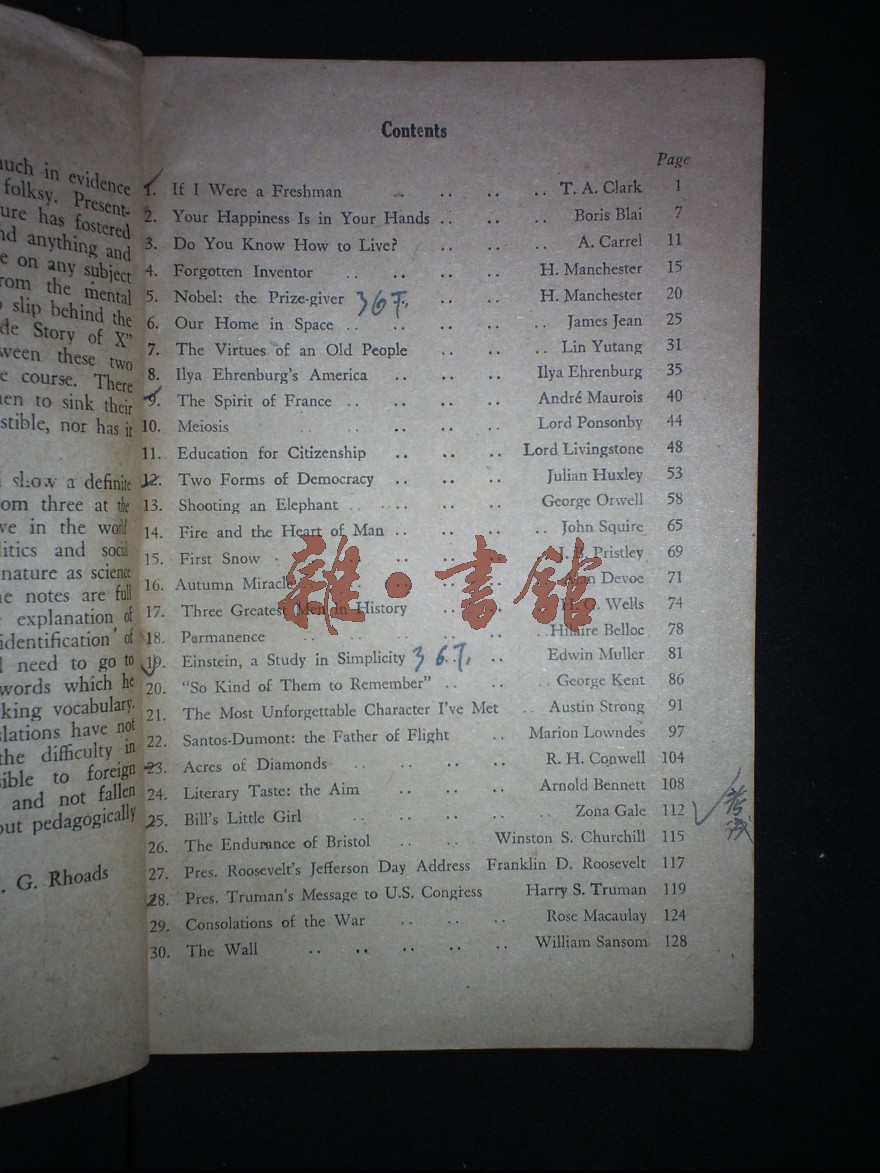 much in evidence
folksy. Present-
ure has fostered
nd anything and
e on any subject
rom the mental
slip behind the
de Story of X"
ween these two
e course. There
en to sink their
stible, nor has it
show a definite
om three at the
ve in the world
litics and social
nature as science
e notes are full
explanation of
identification of
need to go to
words which he
king vocabulary.
slations have not
the difficulty in
sible to foreign
and not fallen
out pedagogically
. G. Rhoads
Contents
Page
1. If I Were a Freshman .. .. .. .. T. A. Clark 1
2. Your Happiness Is in Your Hands .. .. .. Boris Blai 7
3. Do You Know How to Live? .. .. .. A. Carrel 11
4. Forgotten Inventor .. .. .. .. H. Manchester 15
5. Nobel: the Prize-giver 36T. .. .. H. Manchester 20
6. Our Home in Space .. .. .. .. .. James Jean 25
7. The Virtues of an Old People .. .. .. Lin Yutang 31
8. Ilya Ehrenburg's America .. .. .. Ilya Ehrenburg 35
9. The Spirit of France .. .. .. .. André Maurois 40
10. Meiosis .. .. .. .. Lord Ponsonby 44
11. Education for Citizenship .. .. .. Lord Livingstone 48
12. Two Forms of Democracy .. .. .. Julian Huxley 53
13. Shooting an Elephant .. .. .. .. George Orwell 58
14. Fire and the Heart of Man .. .. .. .. John Squire 65
15. First Snow .. .. .. .. J. B. Pristley 69
16. Autumn Miracle .. .. .. .. Alan Devoe 71
17. Three Greatest Men in History .. .. .. H. G. Wells 74
18. Permanence .. .. .. .. .. Hilaire Belloc 78
19. Einstein, a Study in Simplicity 36.T. .. Edwin Muller 81
20. "So Kind of Them to Remember" .. .. .. George Kent 86
21. The Most Unforgettable Character I've Met .. Austin Strong 91
22. Santos-Dumont: the Father of Flight .. Marion Lowndes 97
23. Acres of Diamonds .. .. .. .. R. H. Conwell 104
24. Literary Taste: the Aim .. .. .. Arnold Bennett 108
25. Bill's Little Girl .. .. .. .. Zona Gale 112
26. The Endurance of Bristol .. .. Winston S. Churchill 115
27. Pres. Roosevelt's Jefferson Day Address Franklin D. Roosevelt 117
28. Pres. Truman's Message to U.S. Congress Harry S. Truman 119
29. Consolations of the War .. .. .. Rose Macaulay 124
30. The Wall .. .. .. .. .. William Sansom 128
雜·書館